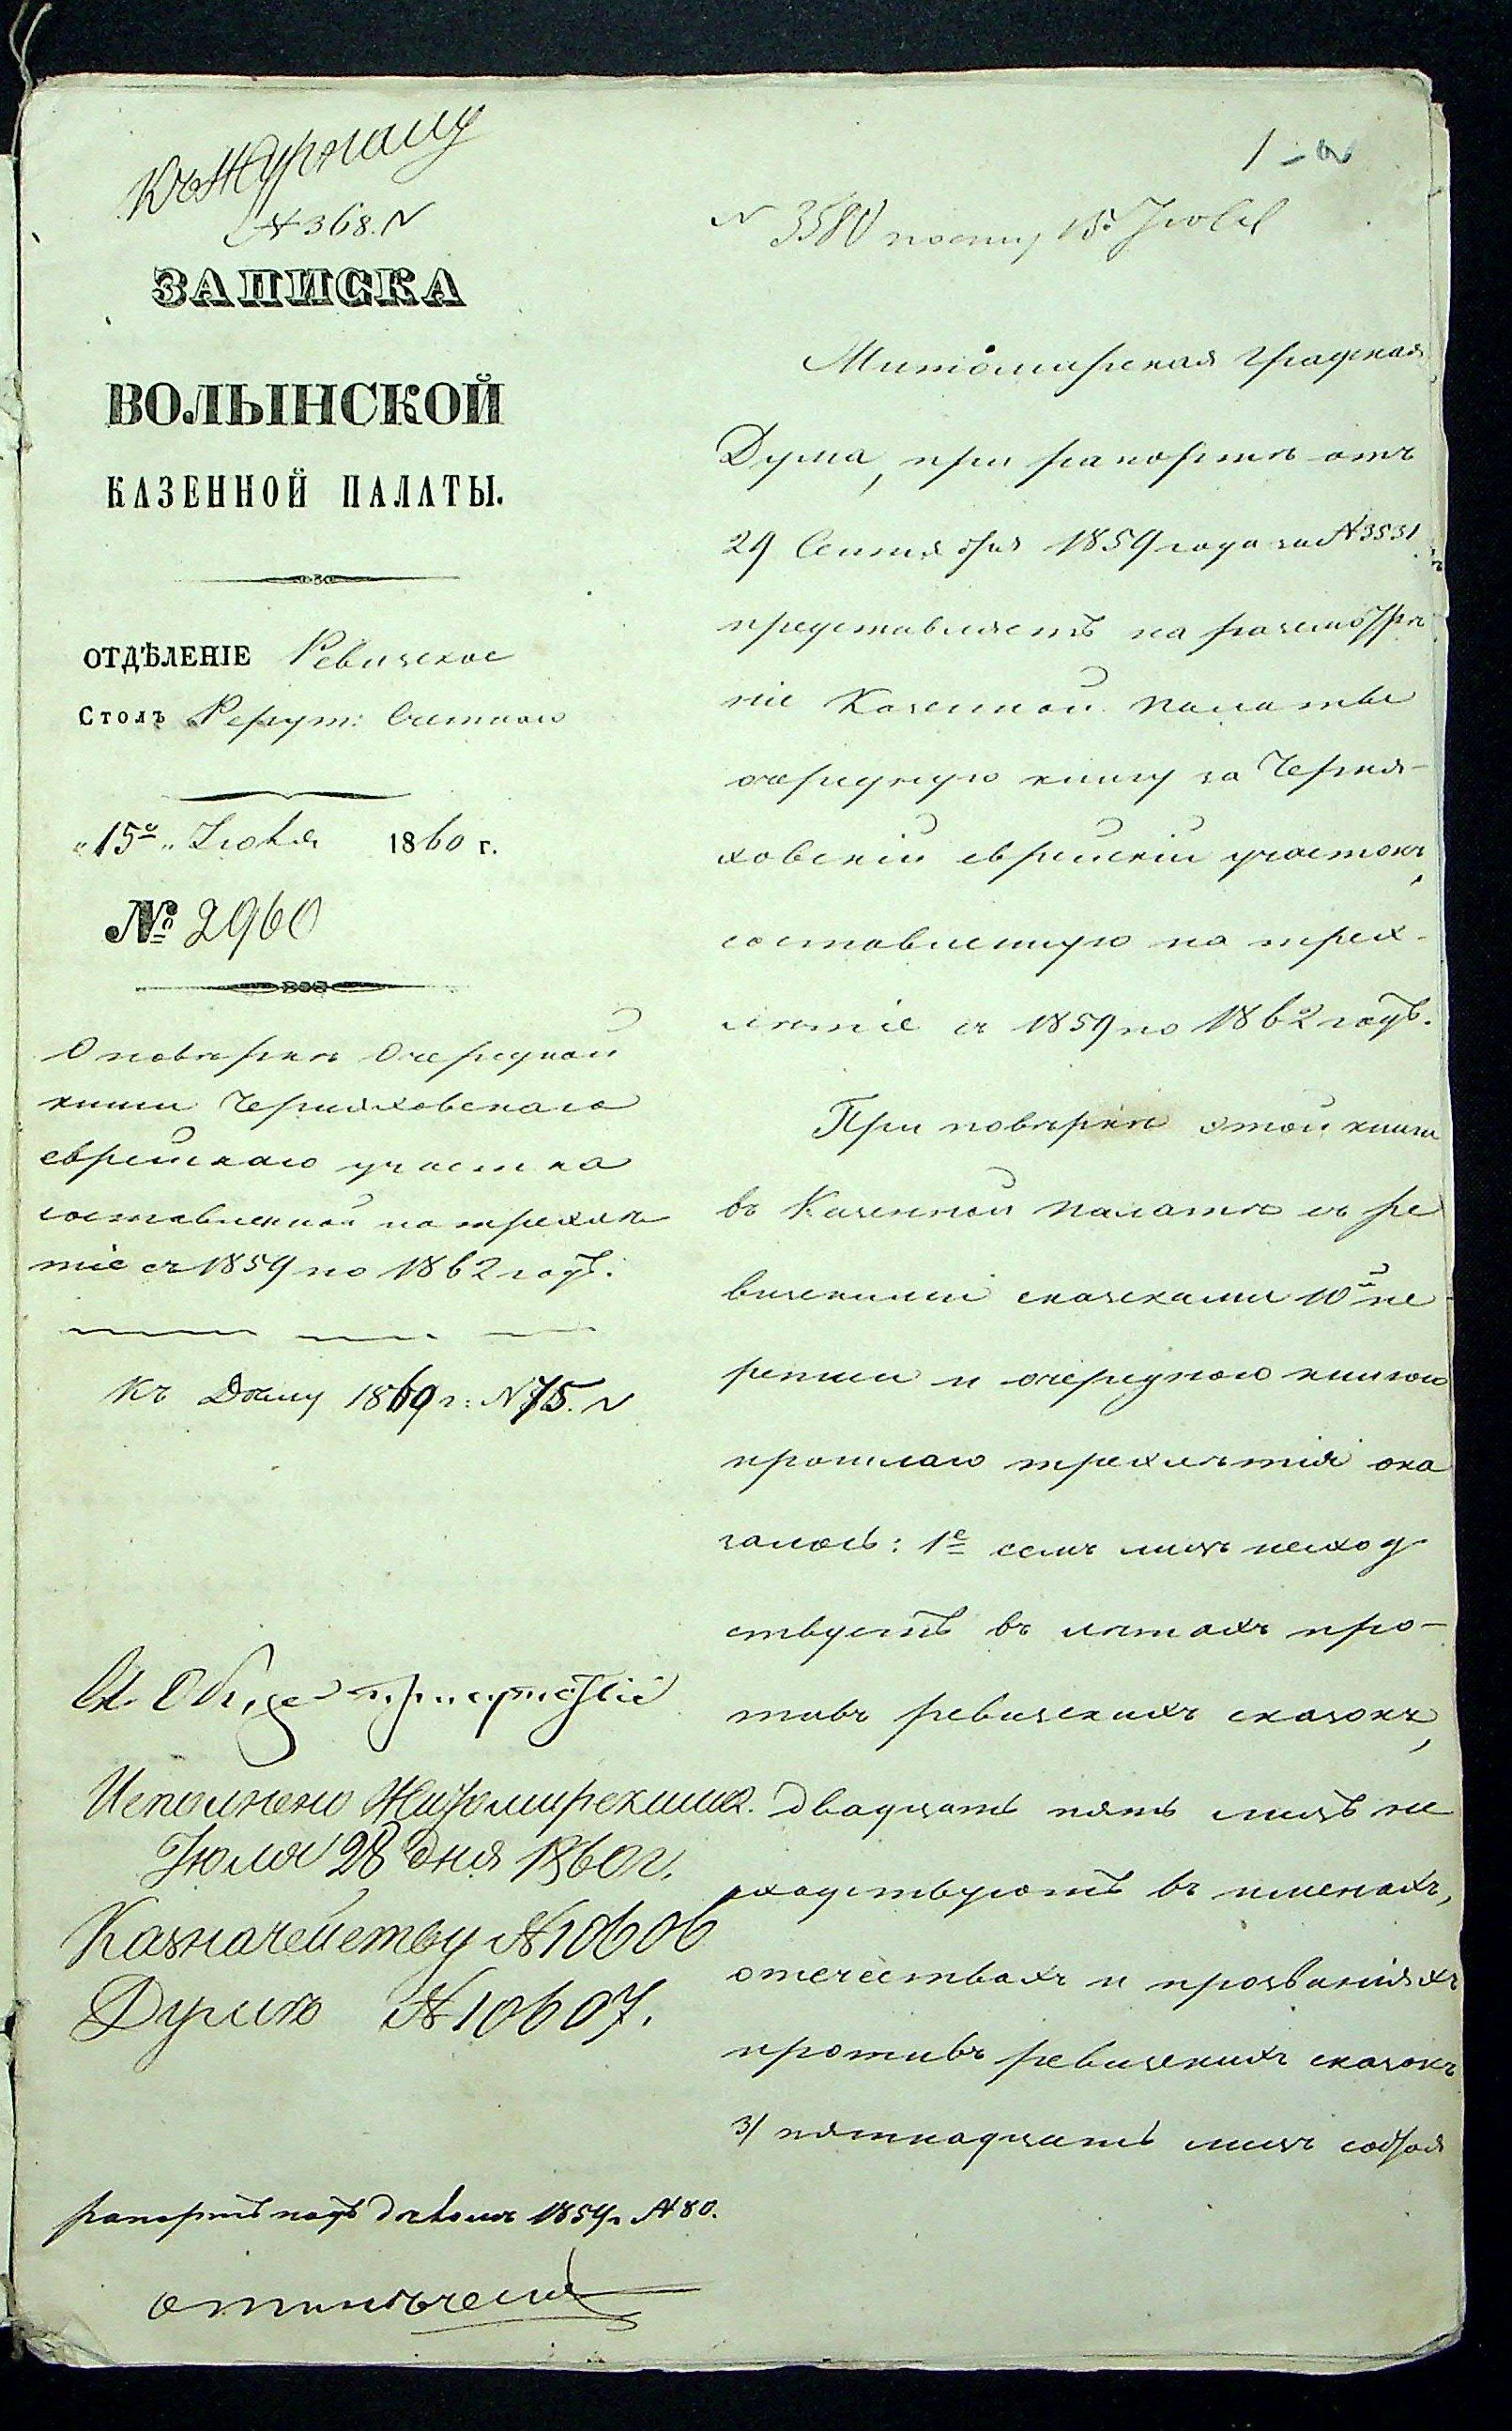 Къ Журналу
№ 368.
ЗАПИСКА
ВОЛЫНСКОЙ
КАЗЕННОЙ ПАЛАТЫ.
ОТДѢЛЕНІЕ Ревизское
Столъ Рекрут: Счетнаго
"15го" Іюля 1860 г.
№ 2960
О повѣркѣ Очередной
книги Черняховскаго
еврейскаго участка
составленной на трехлѣ
тіе съ 1859 по 1862 годъ.
Къ Дѣлу 1860 г: № 75.
Въ Общее присутствіе
Исполнено Житомирскимъ
Іюля 28 дня 1860 г.
Казначейству № 10606
Думѣ № 10607.
рапортъ подъ дѣломъ 1859 г № 80.
отмѣчено
1
№ 3580 пост. 15 Іюля
Житомирская Градская
Дума, при рапортѣ отъ
29 Сентября 1859 года за № 3531
представляетъ на разсмотрѣ
ніе Казенной Палаты
очередную книгу за Черня-
ховскій еврейскій участокъ,
составленную на трех-
лѣтіе съ 1859 по 1862 годъ.
При повѣркѣ этой книги
въ Казенной Палатѣ съ ре
визскими сказками 10й пе
реписи и очередною книгою
прошлаго трехлѣтія ока
залось: 1е семь лицъ несход
ствуетъ въ лѣтахъ про-
тивъ ревизскихъ сказокъ,
2. двадцать пять лицъ не
сходствуютъ въ именахъ,
отечествахъ и прозваніяхъ
противъ ревизскихъ сказокъ
3/ пятнадцать лицъ